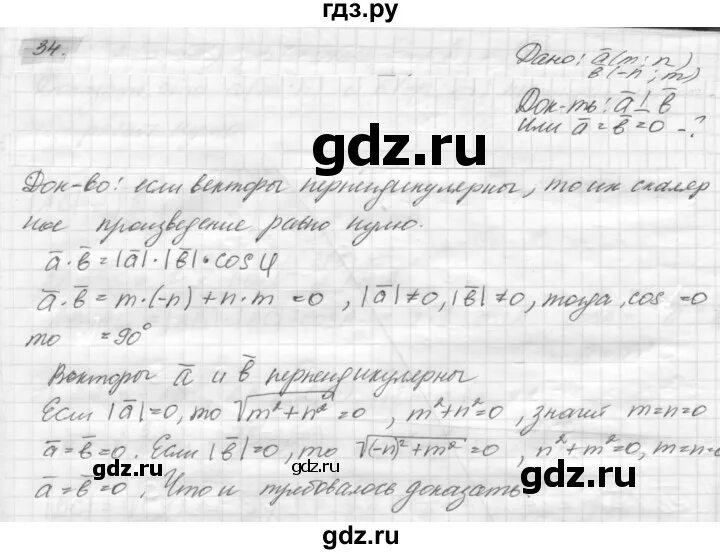 гдз.ру
34.
Дано: a̅(m; n)
в̅(-n; m)
Док-ть: a̅⊥b̅
Или a̅=b̅=0 -?
gdz.ru
Док-во: если векторы перпендикулярны, то их скаляр
ное произведение равно нулю.
a̅·b̅=|a̅|·|b̅|·cos φ
a̅·b̅=m·(-n)+n·m=0, |a̅|≠0, |b̅|≠0, тогда, cos =0
то =90°
Векторы a̅ и b̅ перпендикулярны
Если |a̅|=0, то √m²+n²=0, m²+n²=0, значит m=n=0
a̅=b̅=0. Если |b̅|=0, то √(-n)²+m²=0, n²+m²=0, m=n=0
gdz.ru
gdz.ru
a̅=b̅=0. Что и требовалось доказать.
gdz.ru
gdz.ru